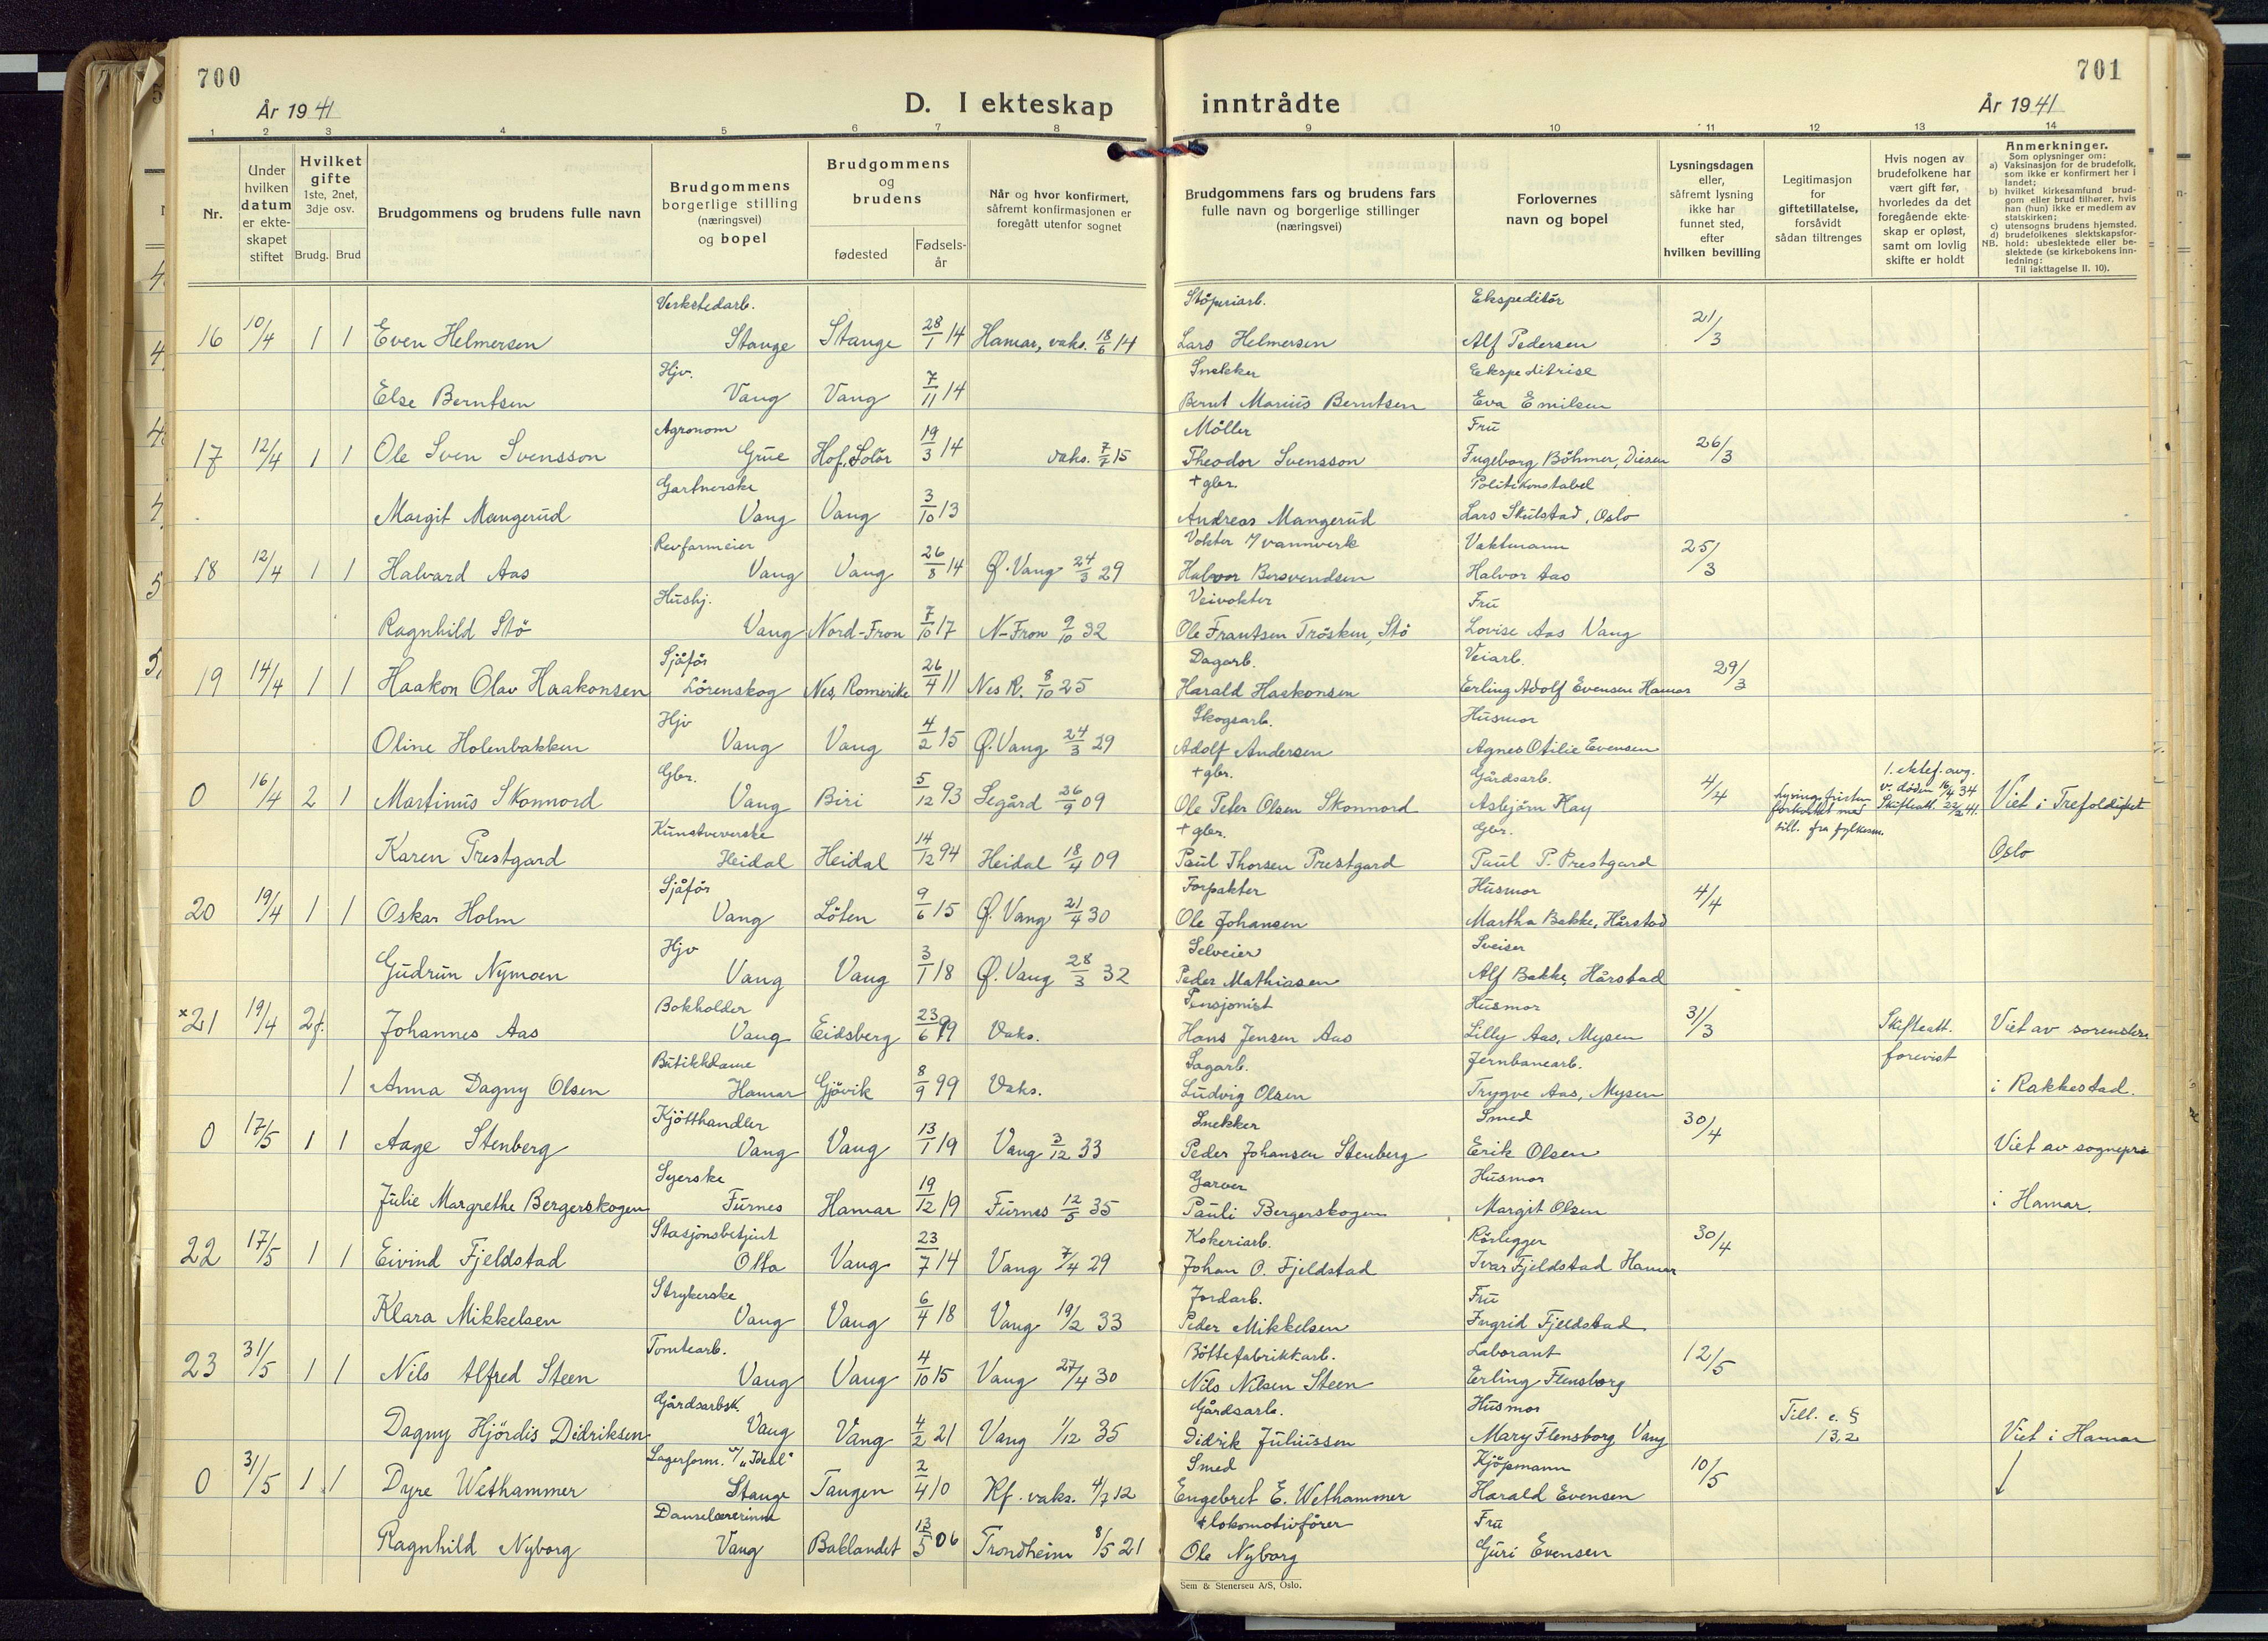 700
År 1941
D. I ekteskap
inntrådte
701
År 1941
1 2 3 4 5 6 7 8 9 10 11 12 13 14
Nr.
Under hvilken datum er ekteskapet stiftet
Hvilket gifte 1ste, 2net, 3dje osv.
Brudg. Brud
Brudgommens og brudens fulle navn
Brudgommens borgerlige stilling (næringsvei) og bopel
Brudgommens og brudens
fødested
Fødselsår
Når og hvor konfirmert, såfremt konfirmasjonen er foregått utenfor sognet
Brudgommens fars og brudens fars fulle navn og borgerlige stillinger (næringsvei)
Forlovernes navn og bopel
Lysningsdagen eller, såfremt lysning ikke har funnet sted, efter hvilken bevilling
Legitimasjon for giftetillatelse, forsåvidt sådan tiltrenges
Hvis nogen av brudefolkene har vært gift før, hvorledes da det foregående ekteskap er opløst, samt om lovlig skifte er holdt
Anmerkninger.
Som oplysninger om:
a) Vaksinasjon for de brudefolk, som ikke er konfirmert her i landet;
b) hvilket kirkesamfund brudgom eller brud tilhører, hvis han (hun) ikke er medlem av statskirken;
c) utensogns brudens hjemsted.
d) brudefolkenes slektskapsforhold: ubeslektede eller beslektede (se kirkebokens innledning:
NB.
Til iakttagelse II. 10).
Verkstedarb. Støperiarb. Ekspeditør
16 10/4 1 1 Even Helmersen Stange Stange 28/1 14 Hamar, vaks. 18/6 14 Lars Helmersen Alf Pedersen 21/3
Hjv. Snekker Ekspeditrise
Else Berntsen Vang Vang 7/11 14 Bernt Marius Berntsen Eva Emilsen
Agronom Møller Fru
17 12/4 1 1 Ole Sven Svensson Grue Hof, Solør 19/3 14 vaks. 15 Theodor Svensson Ingeborg Böhmer, Diesen 26/3
Gartnerske + gbr. Politikonstabel
Margit Mangerud Vang Vang 3/10 13 Andreas Mangerud Lars Skulstad, Oslo
Revfarmeier Vokter v/ vannverk Vaktmann
18 12/4 1 1 Halvard Aas Vang Vang 26/8 14 Ø. Vang 24/3 29 Halvor Bersvendsen Halvor Aas 25/3
Hushj. Veivokter Fru
Ragnhild Stø Vang Nord-Fron 7/10 17 N-Fron 9/10 32 Ole Frantsen Trøsken, Stø Lovise Aas Vang
Sjåfør Dagarb. Veiarb.
19 14/4 1 1 Haakon Olav Haakonsen Lørenskog Nes, Romerike 26/4 11 Nes R. 8/10 25 Harald Haakonsen Erling Adolf Evensen Hamar 29/3
Hjv Skogsarb. Husmor
Oline Holenbakken Vang Vang 4/2 15 Ø. Vang 24/3 29 Adolf Andersen Agnes Otilie Evensen
Gbr. + gbr. Gårdsarb. 1. ektef. avg.
0 16/4 2 1 Martinus Skonnord Vang Biri 5/12 93 Segård 26/9 09 Ole Peter Olsen Skonnord Asbjørn Kay 4/4 Lysningsfristen forkortet med till. fra fylkesm. v. døden 16/4 34 Skifteatt. 22/2 41. Viet i Trefoldighet
Kunstveverske + gbr. Gbr.
Karen Prestgard Heidal Heidal 14/12 94 Heidal 18/4 09 Paul Thorsen Prestgard Paul P. Prestgard Oslo
Sjåfør Forpakter Husmor
20 19/4 1 1 Oskar Holm Vang Løten 9/6 15 Ø. Vang 21/4 30 Ole Johansen Martha Bakke, Hårstad 4/4
Hjv Selveier Sveiser
Gudrun Nymoen Vang Vang 3/1 18 Ø. Vang 28/3 32 Peder Mathiasen Alf Bakke, Hårstad
Bokholder Pensjonist Husmor
x21 19/4 2f. Johannes Aas Vang Eidsberg 23/6 99 Vaks. Hans Jensen Aas Lilly Aas, Mysen 31/3 Skifteatt. forevist Viet av sorenskr.
Butikkdame Sagarb. Jernbanearb.
1 Anna Dagny Olsen Hamar Gjøvik 8/9 99 Vaks. Ludvig Olsen Trygve Aas, Mysen i Rakkestad.
Kjøtthandler Snekker Smed
0 17/5 1 1 Aage Stenberg Vang Vang 13/1 19 Vang 3/12 33 Peder Johansen Stenberg Erik Olsen 30/4 Viet av sognepre
Syerske Garver Husmor
Julie Margrethe Bergerskogen Furnes Hamar 19/12 19 Furnes 12/5 35 Pauli Bergerskogen Margit Olsen i Hamar.
Stasjonsbetjent Kokeriarb. Rørlegger
22 17/5 1 1 Eivind Fjeldstad Otta Vang 23/7 14 Vang 7/4 29 Johan O. Fjeldstad Ivar Fjeldstad Hamar 30/4
Strykerske Jordarb. Fru
Klara Mikkelsen Vang Vang 6/4 18 Vang 19/2 33 Peder Mikkelsen Ingrid Fjeldstad
Tomtearb. Bøttefabrikk.arb. Laborant
23 31/5 1 1 Nils Alfred Steen Vang Vang 4/10 15 Vang 27/4 30 Nils Nilsen Steen Erling Flensborg 12/5
Gårdsarbsk. Gårdsarb. Husmor
Dagny Hjørdis Didriksen Vang Vang 4/2 21 Vang 1/12 35 Didrik Juliussen Mary Flensborg Vang Till. e. § 13,2 Viet i Hamar
Lagerform. v/ "Ideal" Smed Kjøpmann
0 31/5 1 1 Dyre Wethammer Stange Tangen 2/4 10 Kf. vaks. 4/7 12 Engebret E. Wethammer Harald Evensen 10/5
Danselærerinne + lokomotivfører Fru
Ragnhild Nyborg Vang Baklandet 13/5 06 Trondheim 8/5 21 Ole Nyborg Guri Evensen
Sem & Stenersen A/S, Oslo.